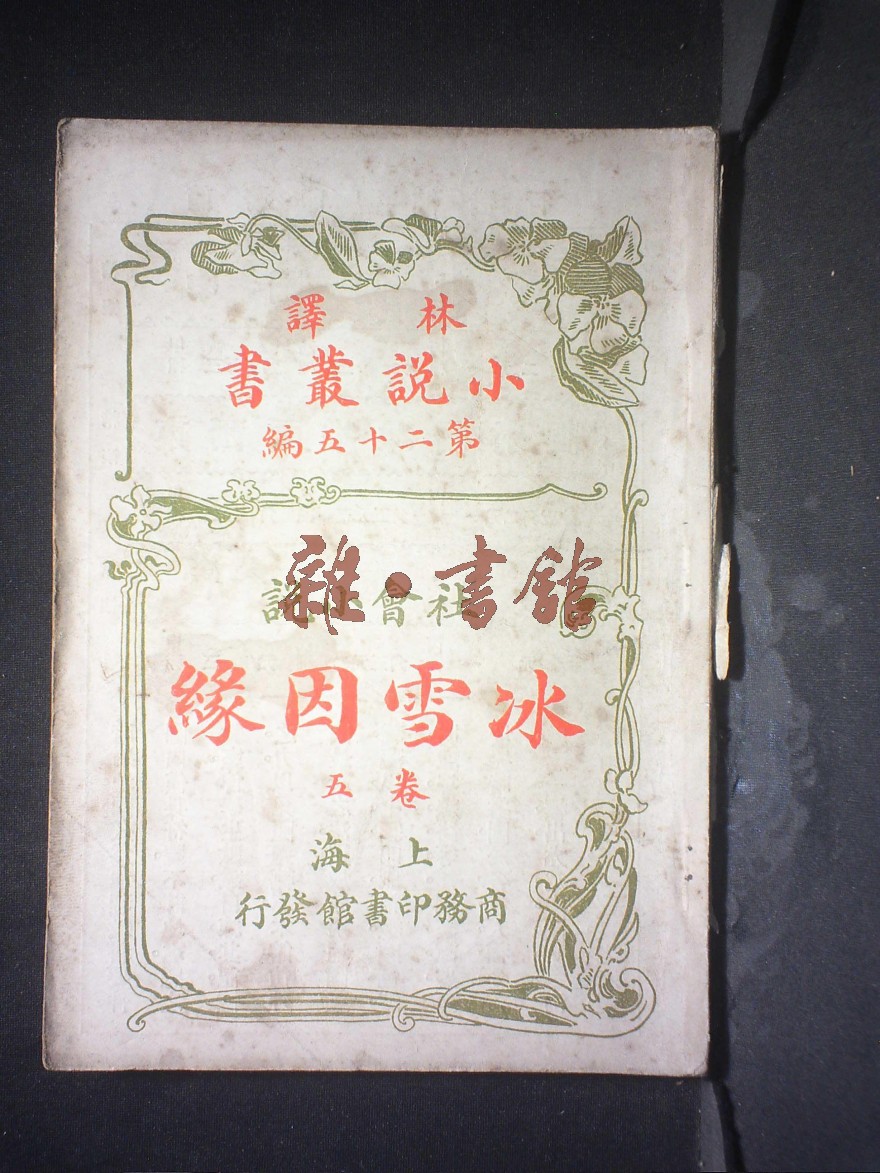 林譯
小説叢書
第二十五編
社會小説
雜·書館
冰雪因緣
卷五
上海
商務印書館發行